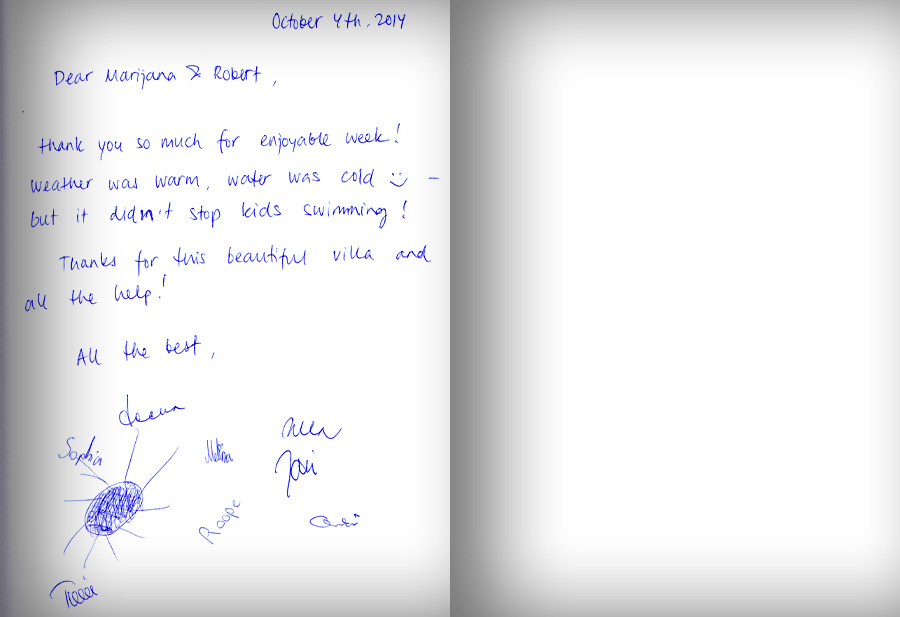 October 4th, 2014
Dear Marijana & Robert,
thank you so much for enjoyable week!
weather was warm, water was cold :) -
but it didn't stop kids swimming!
Thanks for this beautiful villa and
all the help!
All the best,
Sophia
Roope